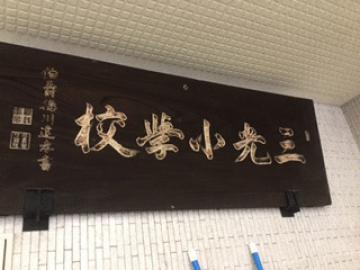 三光小學校
伯爵德川達孝書